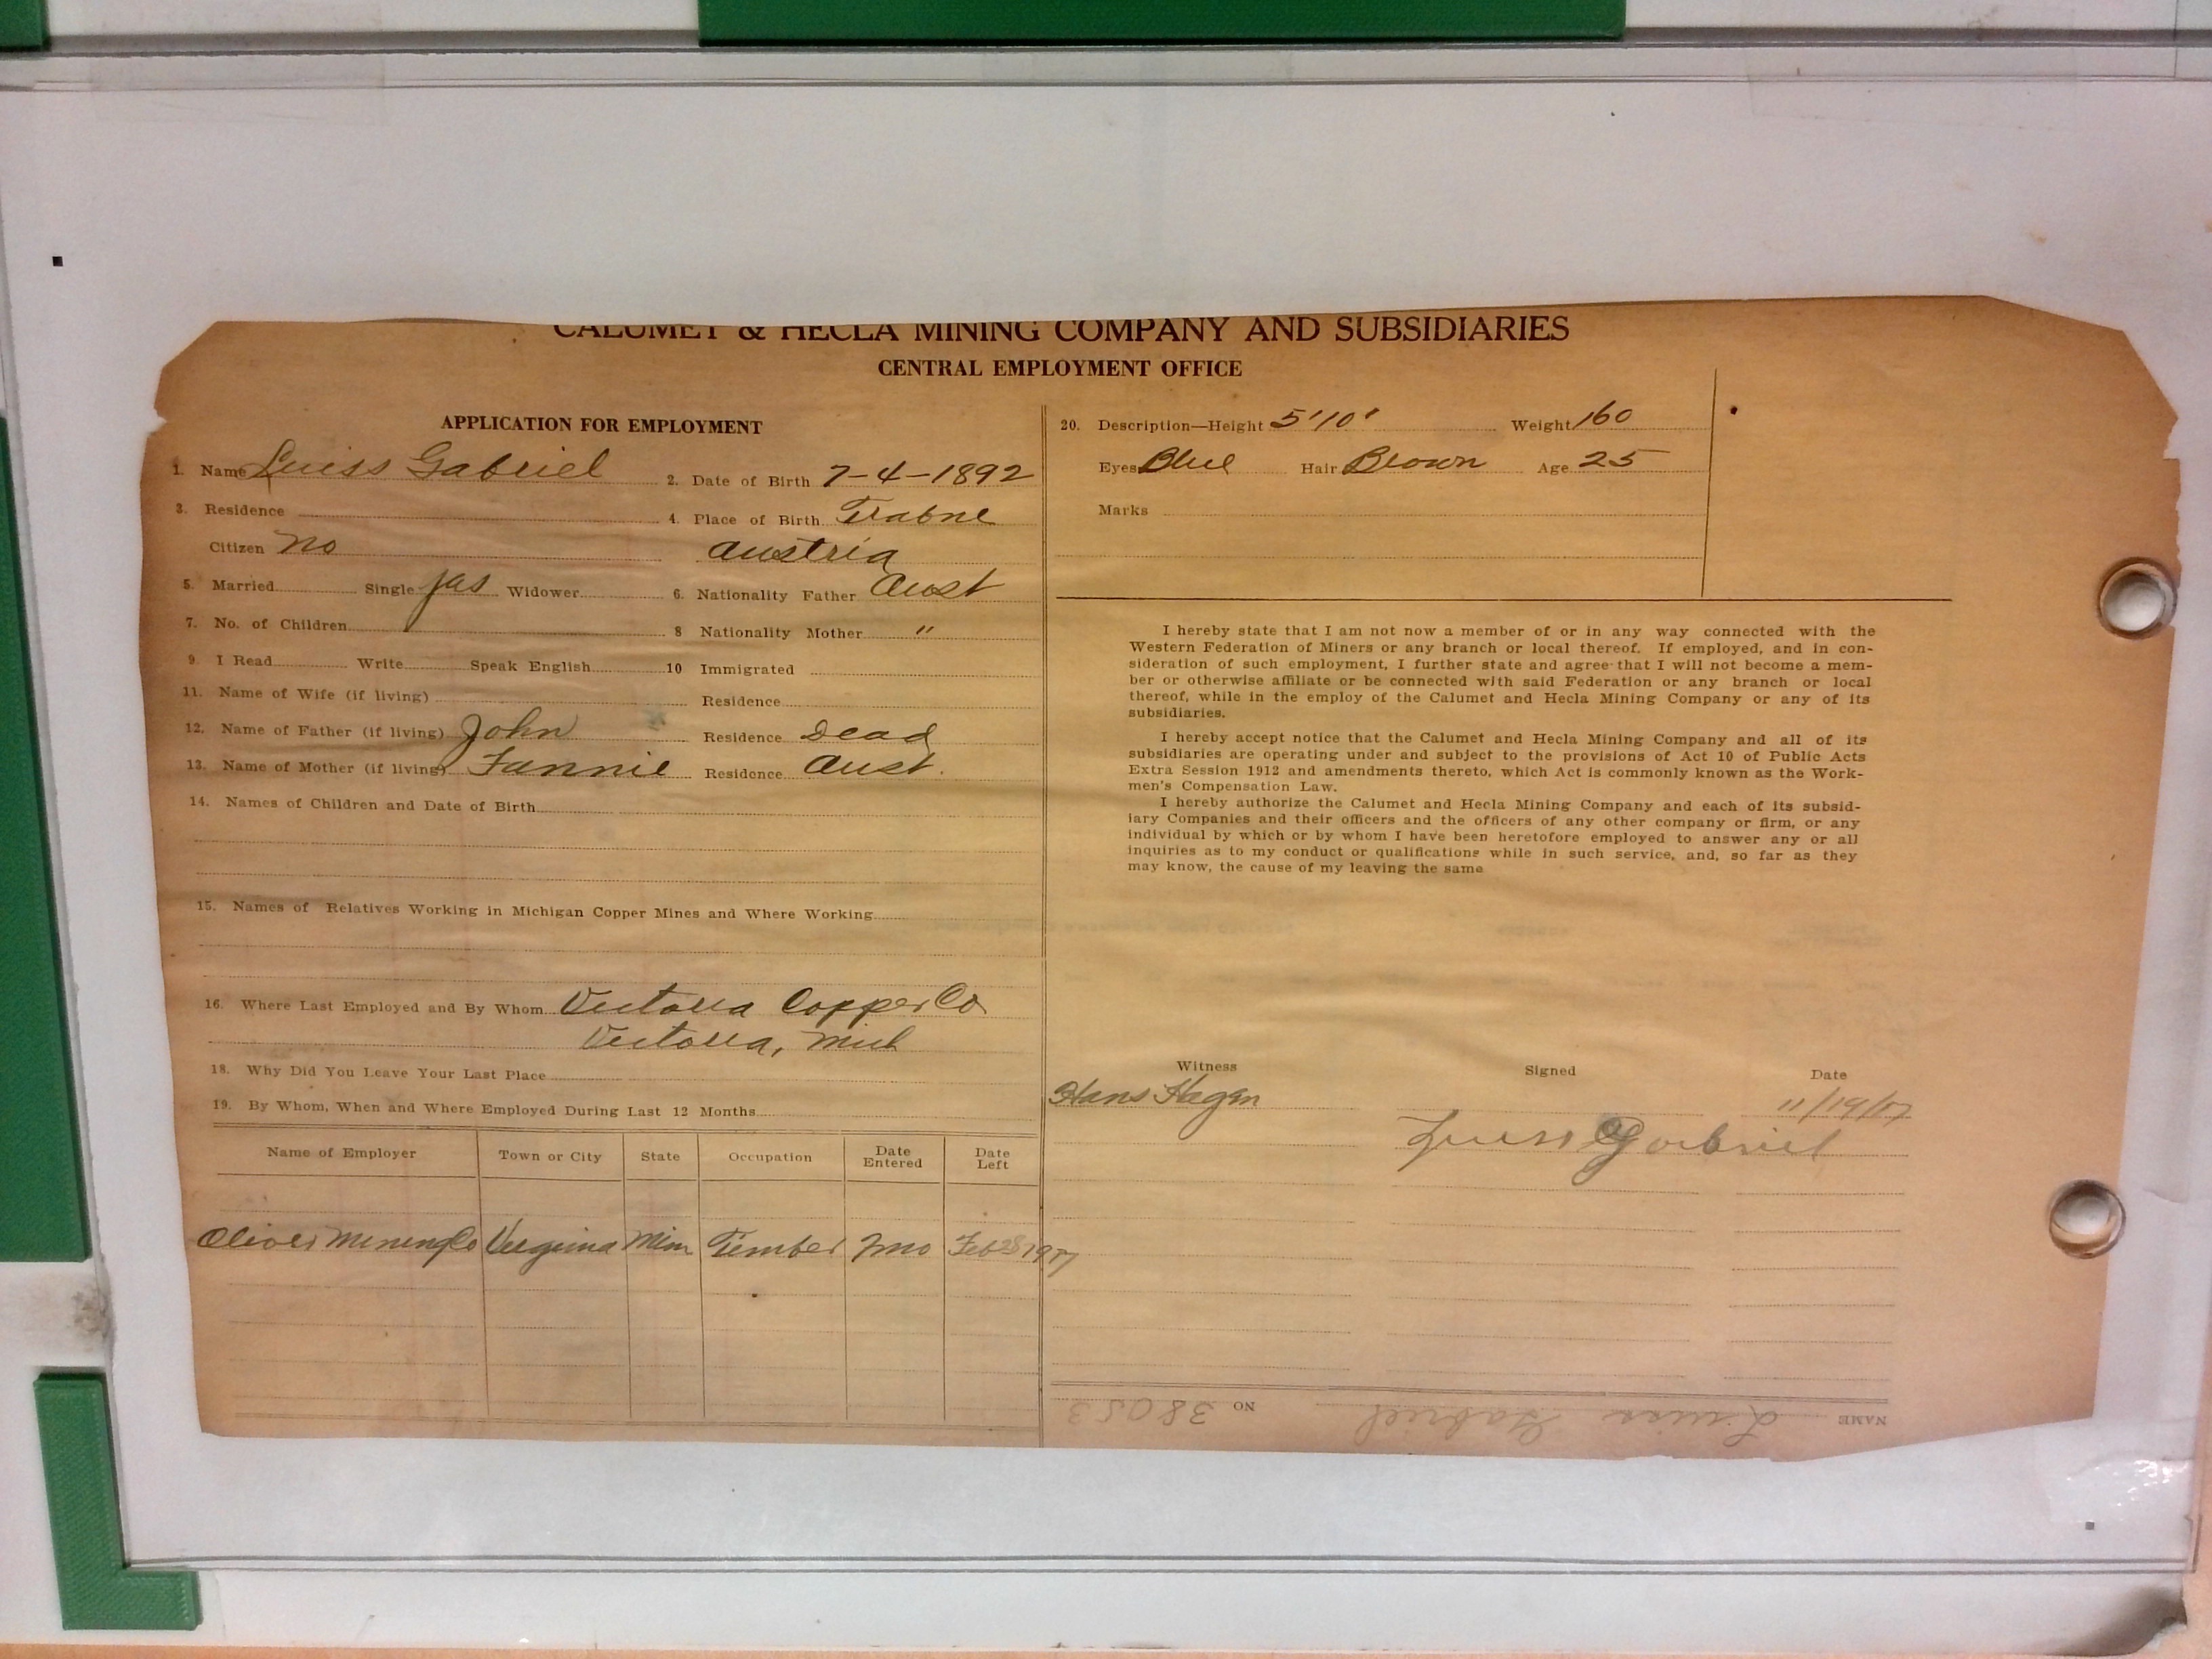 CALUMET & HECLA MINING COMPANY AND SUBSIDIARIES
CENTRAL EMPLOYMENT OFFICE
APPLICATION FOR EMPLOYMENT
1. Name Luiss Gabriel 2. Date of Birth 7-4-1892
3. Residence 4. Place of Birth Trabne
Citizen no Austria
5. Married Single yas Widower 6. Nationality Father Aust
7. No. of Children 8 Nationality Mother "
9. I Read Write Speak English 10 Immigrated
11. Name of Wife (if living) Residence
12. Name of Father (if living) John Residence Dead
13. Name of Mother (if living) Fannie Residence Aust.
14. Names of Children and Date of Birth
15. Names of Relatives Working in Michigan Copper Mines and Where Working
16. Where Last Employed and By Whom Victoria Copper Co
Victoria, Mich
18. Why Did You Leave Your Last Place
19. By Whom, When and Where Employed During Last 12 Months
Name of Employer Town or City State Occupation Date Entered Date Left
Oliver Mining Co Virginia Minn Timber 7mo Feb 28 1917
20. Description—Height 5'10' Weight 160
Eyes Blue Hair Brown Age 25
Marks
I hereby state that I am not now a member of or in any way connected with the
Western Federation of Miners or any branch or local thereof. If employed, and in con-
sideration of such employment, I further state and agree that I will not become a mem-
ber or otherwise affiliate or be connected with said Federation or any branch or local
thereof, while in the employ of the Calumet and Hecla Mining Company or any of its
subsidiaries.
I hereby accept notice that the Calumet and Hecla Mining Company and all of its
subsidiaries are operating under and subject to the provisions of Act 10 of Public Acts
Extra Session 1912 and amendments thereto, which Act is commonly known as the Work-
men's Compensation Law.
I hereby authorize the Calumet and Hecla Mining Company and each of its subsid-
iary Companies and their officers and the officers of any other company or firm, or any
individual by which or by whom I have been heretofore employed to answer any or all
inquiries as to my conduct or qualifications while in such service, and, so far as they
may know, the cause of my leaving the same
Witness Signed Date
Hans Hagen 11/19/17
Luiss Gabriel
NAME Luiss Gabriel NO 38053